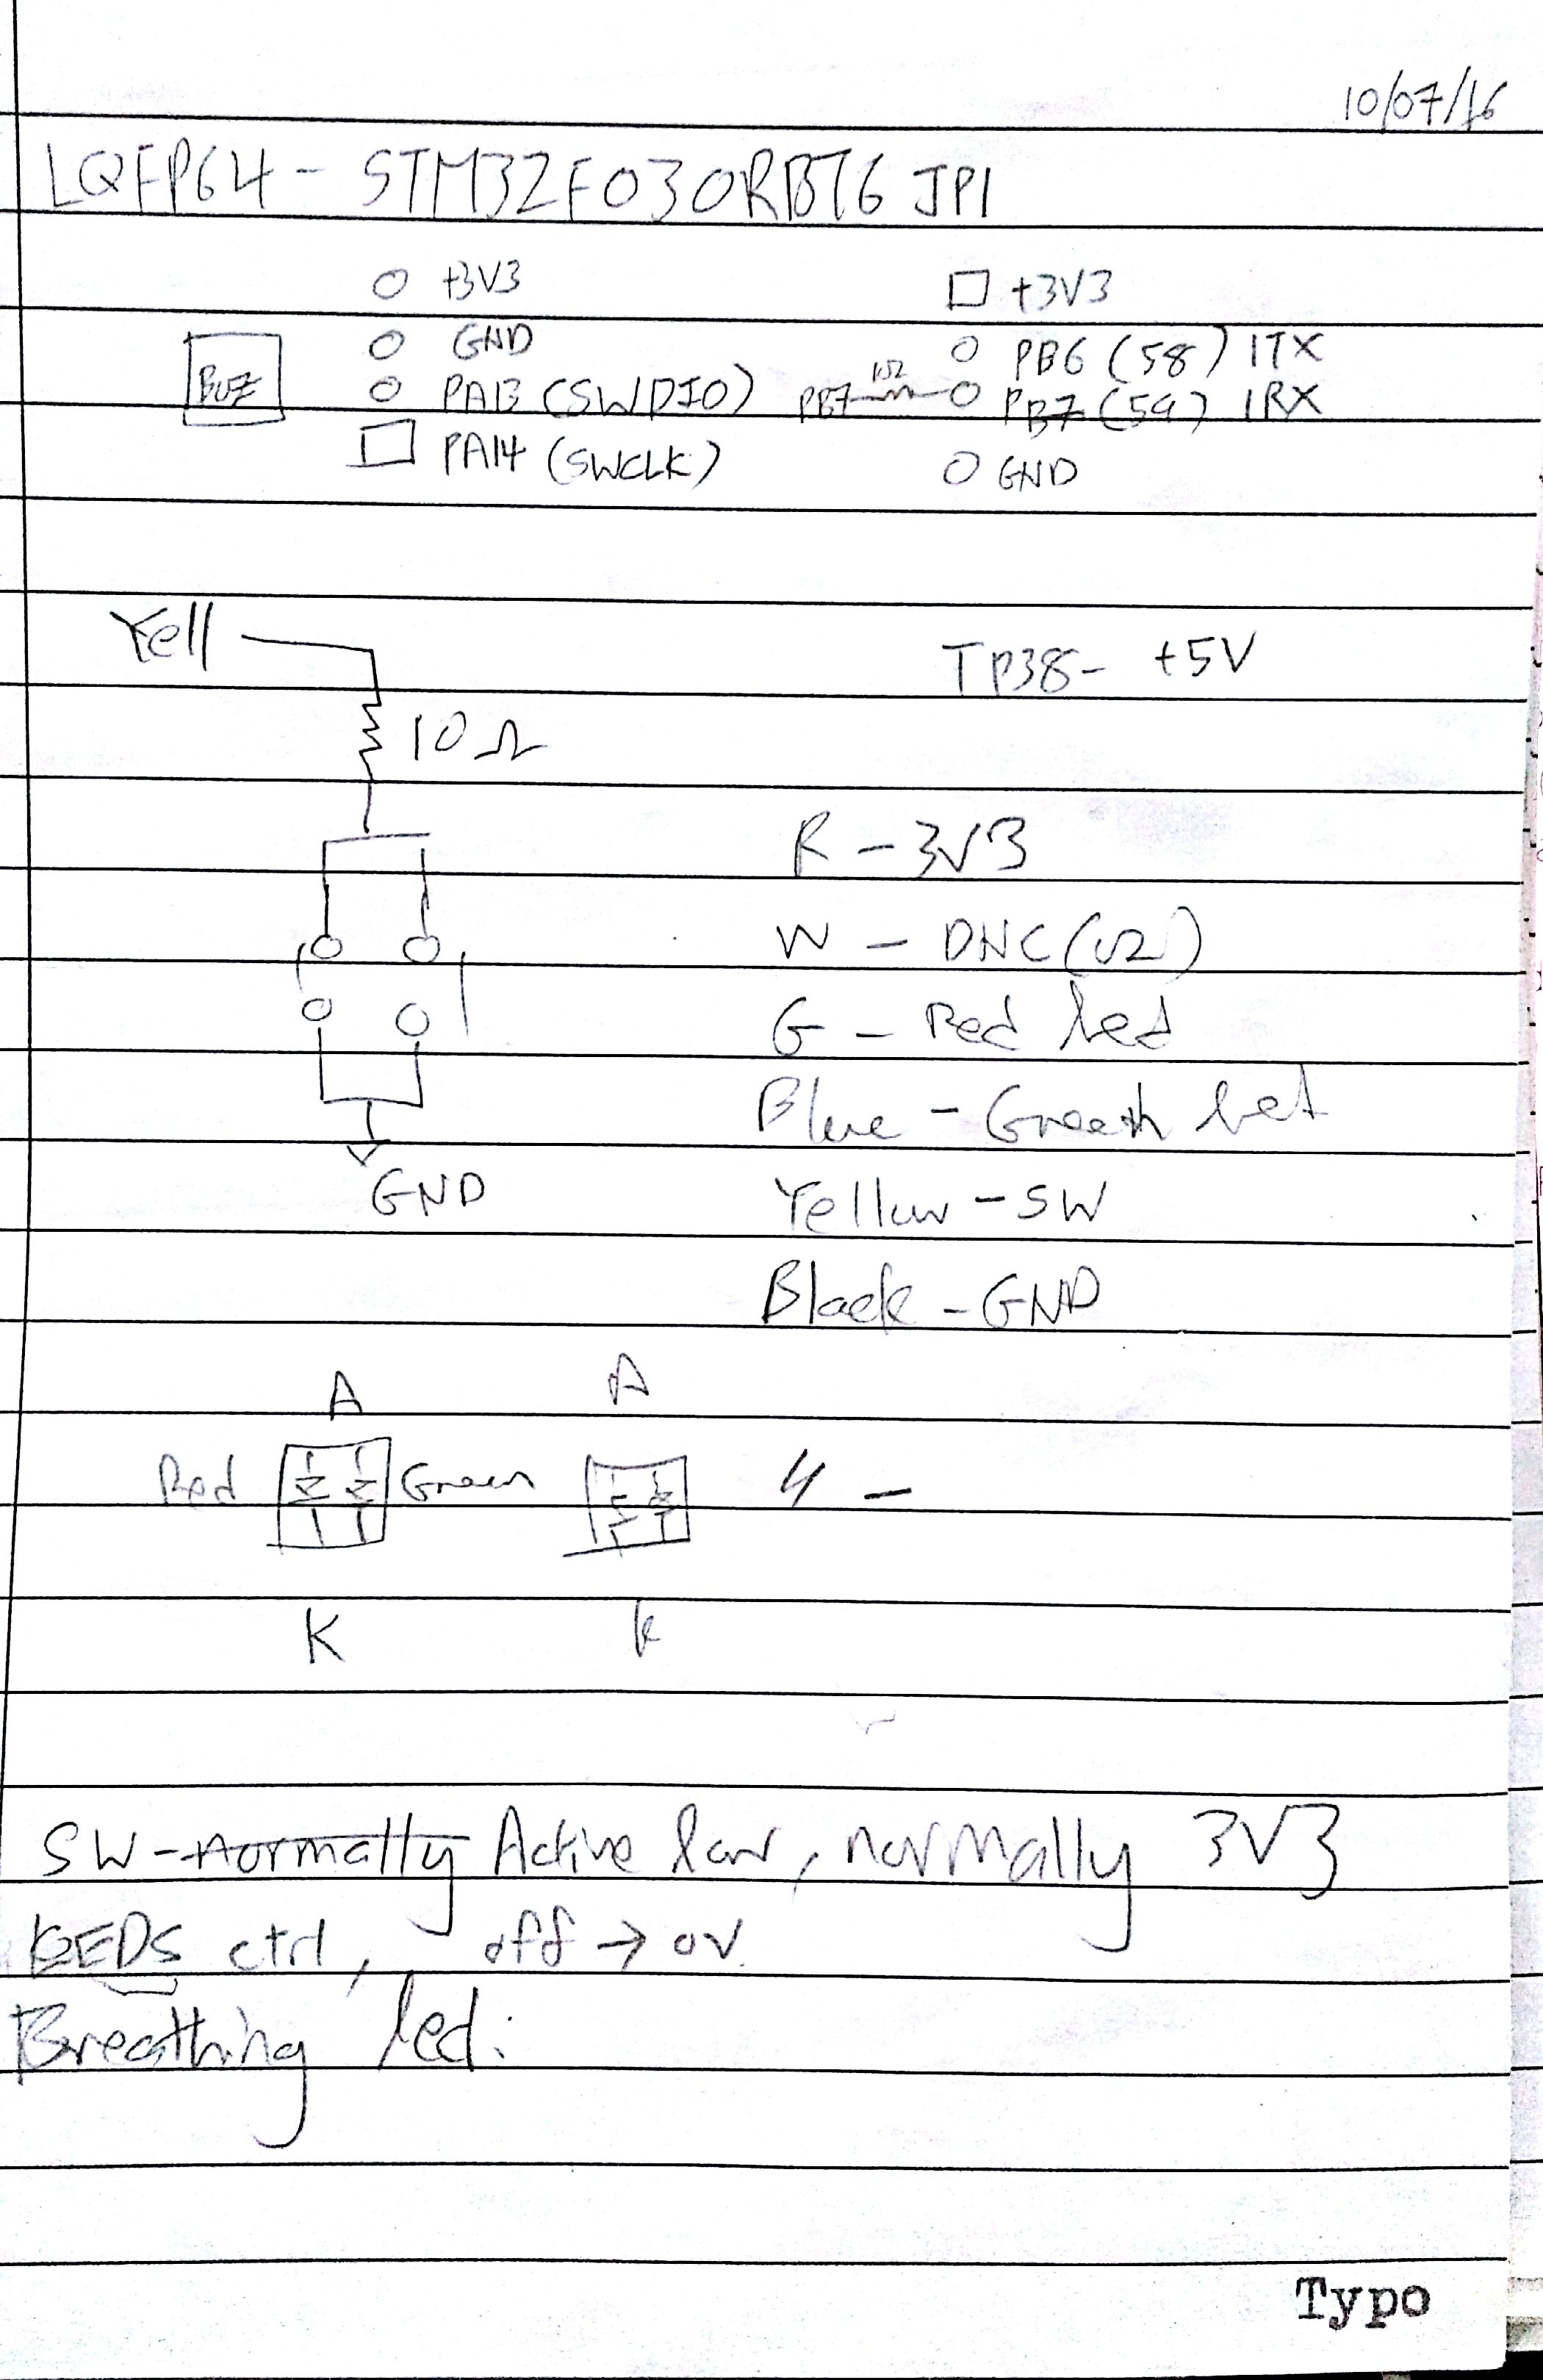 10/07/16
LQFP64 - STM32F030RBT6 JP1
+3V3
GND
BUZ
PA13 (SWDIO)
PA14 (SWCLK)
+3V3
PB6 (58) 1TX
PB7 1Ω PB7 (59) 1RX
GND
Yell
10Ω
GND
TP38- +5V
R - 3V3
W - DNC(V2)
G - Red led
Blue - Green led
Yellow - SW
Black - GND
A A
Red Green 4 -
K K
SW - normally Active low, normally 3V3
LEDS ctrl, off → 0V
Breathing led.
Typo